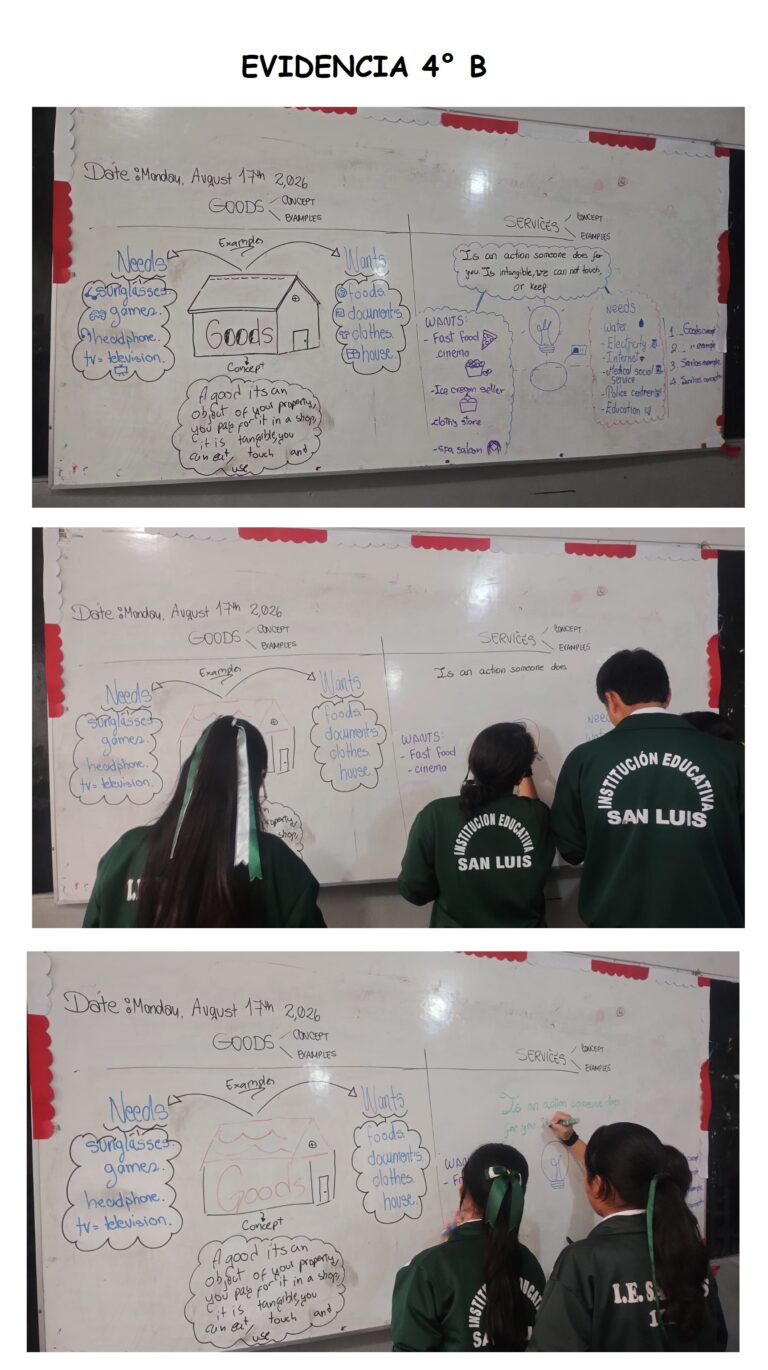 EVIDENCIA 4° B
Date: Monday, August 17th 2,026
GOODS
CONCEPT
EXAMPLES
Examples
Needs
sunglasses
games.
headphone.
tv = television.
Goods
Wants
foods.
documents.
clothes.
house.
Concept
A good its an
object of your property,
you pay for it in a shop,
it is tangible, you
can eat, touch and
use
SERVICES
CONCEPT
EXAMPLES
Is an action someone does for
you. Is intangible, we can not touch,
or keep
WANTS:
- Fast Food
cinema
- Ice cream seller
- clothig store
- spa saloon
NEEDS
Water
- Electricity
- Internet
- Medical social
service
- Police centrer
- Education
1._ Goods concept
2._ " example
3 Servises example
4 Servises concepto
Date: Monday, August 17th 2,026
GOODS
CONCEPT
EXAMPLES
Examples
Needs
sunglasses
games.
headphone.
tv = television.
Wants
foods.
documents.
clothes.
house
property,
shop,
SERVICES
CONCEPT
EXAMPLES
Is an action someone does
WANTS:
- Fast food
- cinema
INSTITUCIÓN EDUCATIVA
SAN LUIS
INSTITUCIÓN EDUCATIVA
SAN LUIS
Date: Monday, August 17th 2,026
GOODS
CONCEPT
EXAMPLES
Examples
Needs
sunglasses
games.
headphone.
tv = television.
Goods
Wants
foods.
documents.
clothes.
house.
Concept
A good its an
object of your property,
you pay for it in a shop,
it is tangible, you
can eat, touch and
use
SERVICES
CONCEPT
EXAMPLES
Is an action someone does
for you
I.E. S